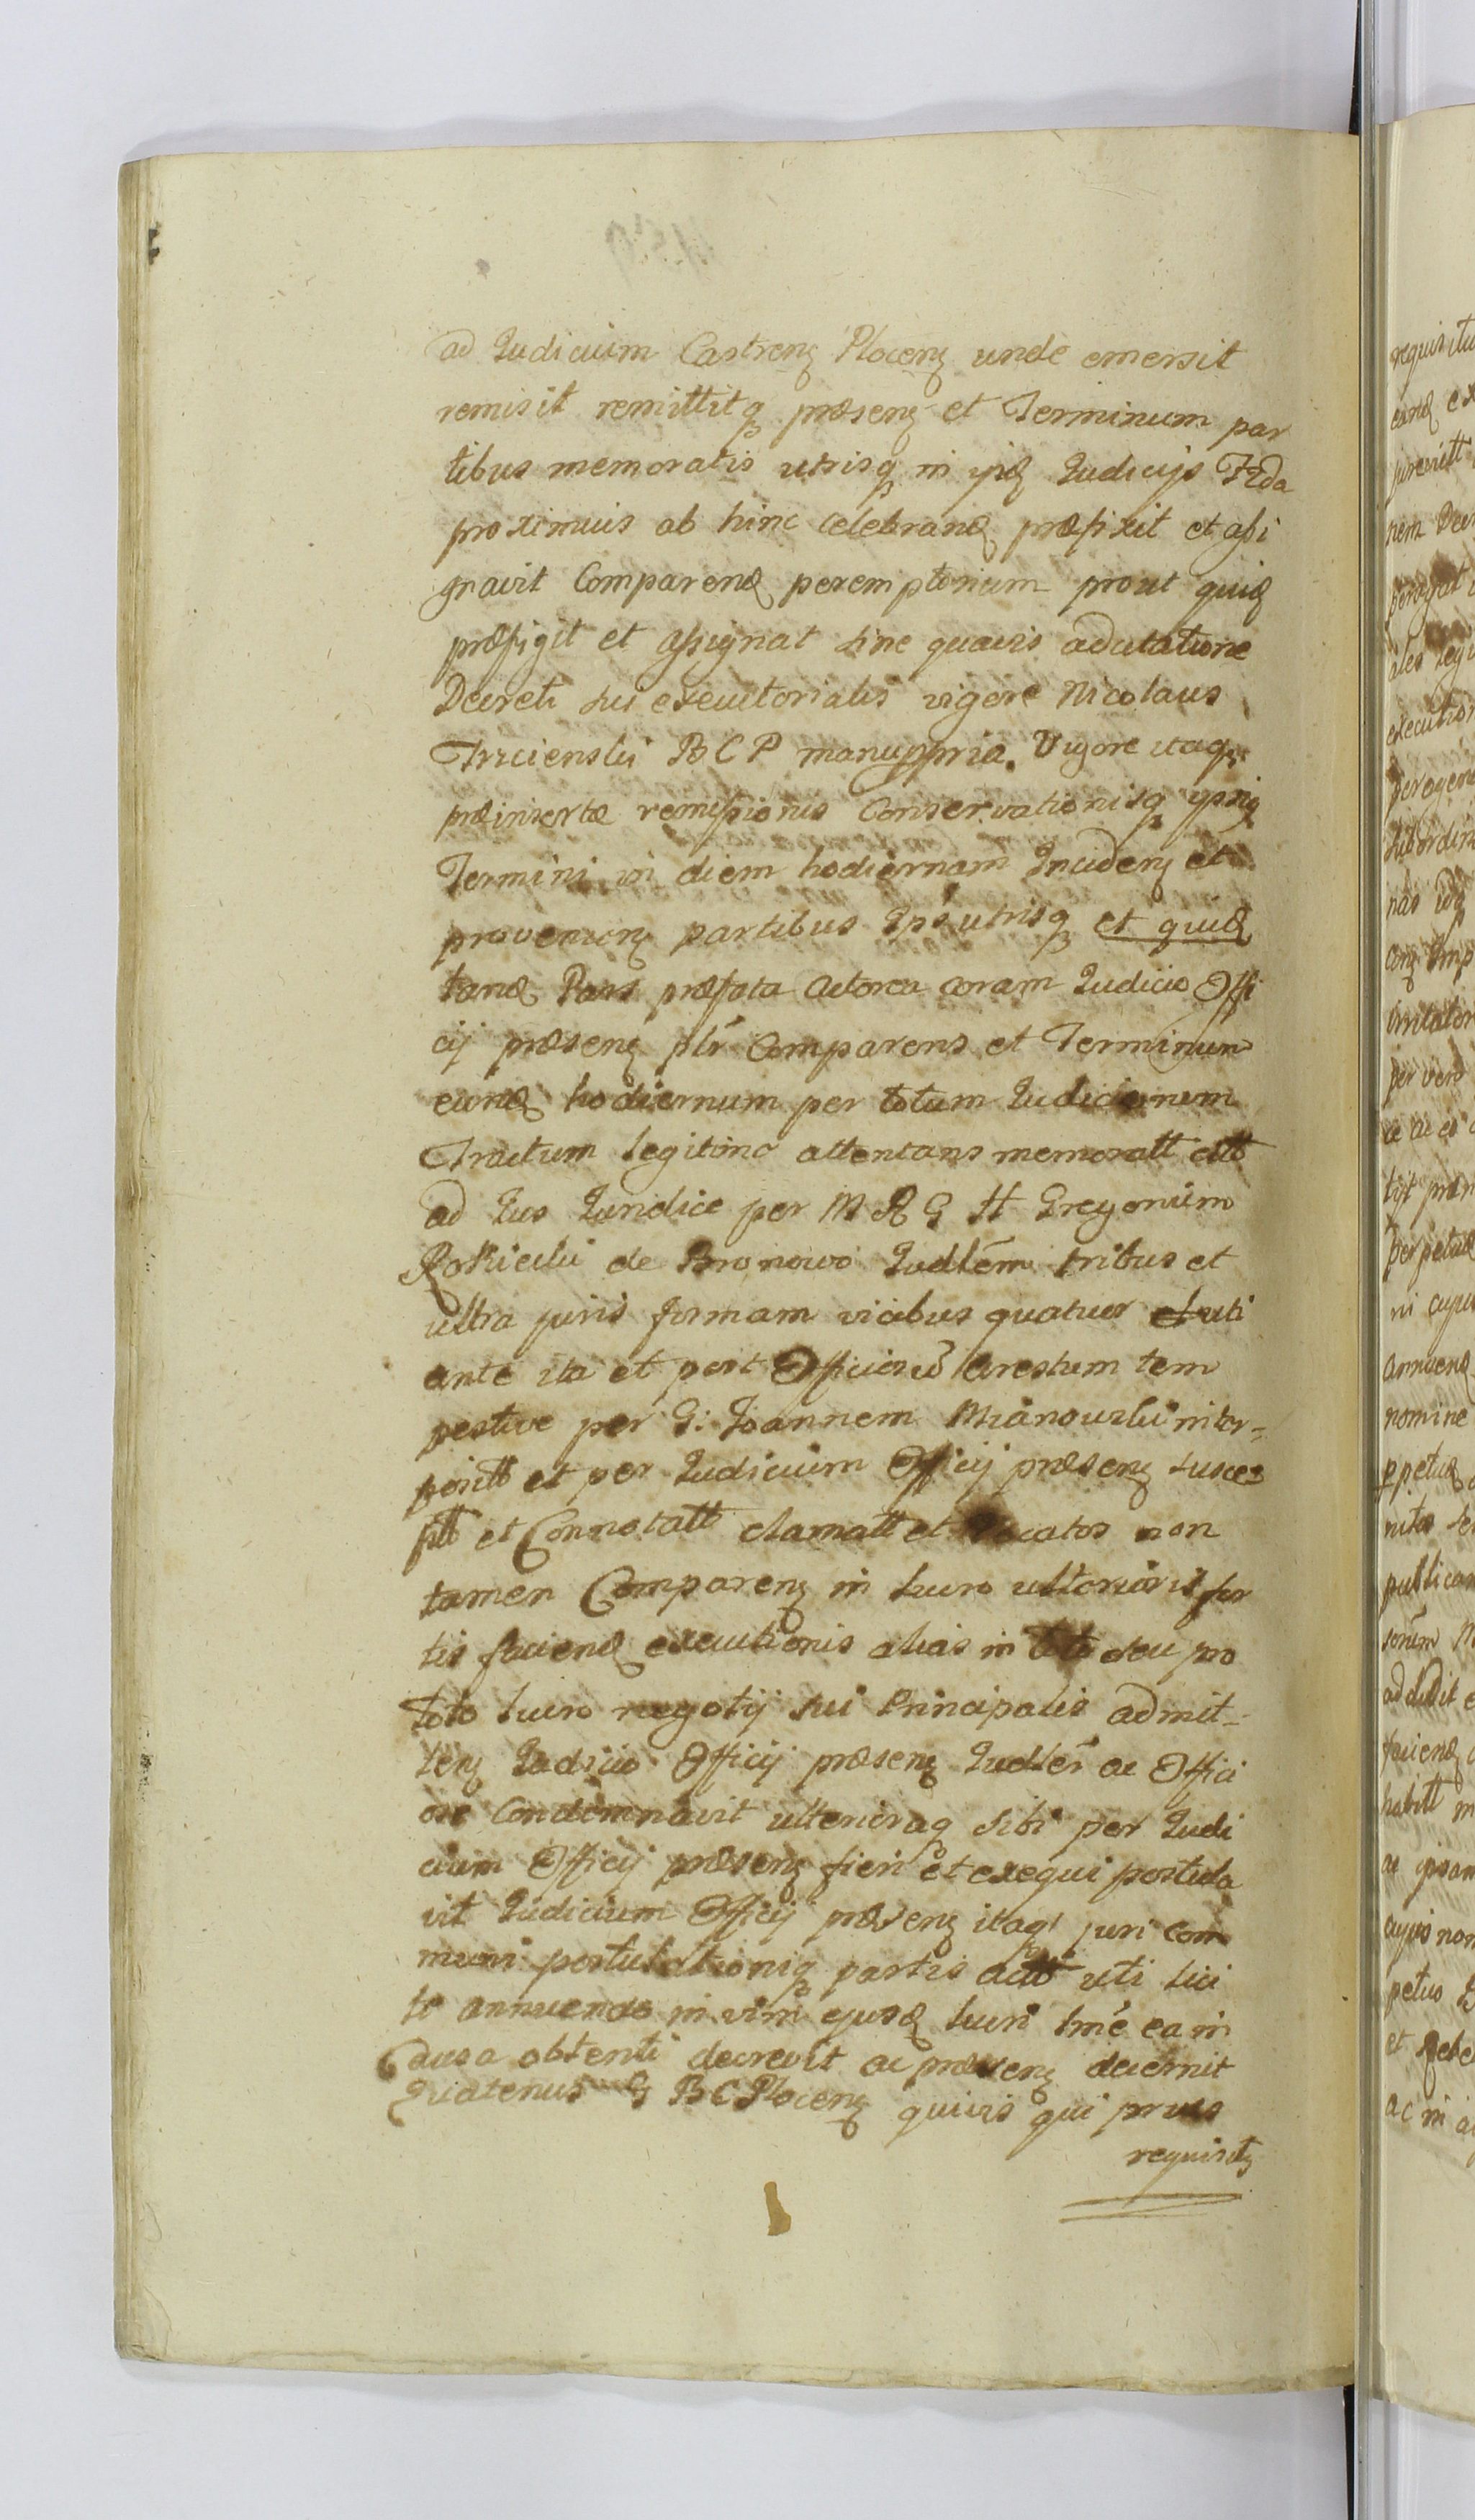 ad Judicium Castrenꝫ Plocenꝫ unde emersit
remisit remittitq præsenꝫ et Terminum par
tibus memoratis utrisq in ysdꝫ Judicijs
proximius ab hinc celebranꝺ præfixit et assi
gnavit Comparenꝺ peremptorium prout quiꝺ
præfigit et assignat sine quavis adcitatione
Decreti sui executorialis vigore Nicolaus
BCP manuppria. Vigore itaq
præinsertæ remissionis Conservationisq ypsiꝫ
Termini in diem hodiernam Incidenꝫ et
provenienꝫ partibus Ips utrisq et quiꝺ
tanꝺ Pars præfata Actorea coram Judicio Offi
cij præsenꝫ plr Comparens et Terminum
eunꝺ hodiernum per totum Judiciorum
Tractum legitime attentans memoratt citt
ad Jus Juridice per M R G H Gregorium
Rokicki de Bronowo Judlem tribus et
ultra juris formam vicibus quatuor et uti
ante ita et post Arestum tem
pestive per G: Joannem Mianowski inter=
posittt et per Judicium Officij præsenꝫ susce
ptt et Connotatt clamatt et vocatos non
tamen Comparenꝫ in lucro ulterioris for
tis facienꝺ executionis alias in toto seu pro
toto lucro negotij sui Principalis admit=
tenꝫ Judicio Officij præsenꝫ Judler ac Offici
ose Condemnavit ulterioraq sibi per Judi
cium Officij præsenꝫ fieri et exequi postula
vit Judicium Officij præsenꝫ itaq juri com
muni postulationiq partis actt uti lici
to annuendo in vim ejusꝺ lucri tme ea in
Causa obtenti decrevit ac præsenꝫ decernit
Quatenus G BC Plocenꝫ quivis qui prius
requisitꝫ